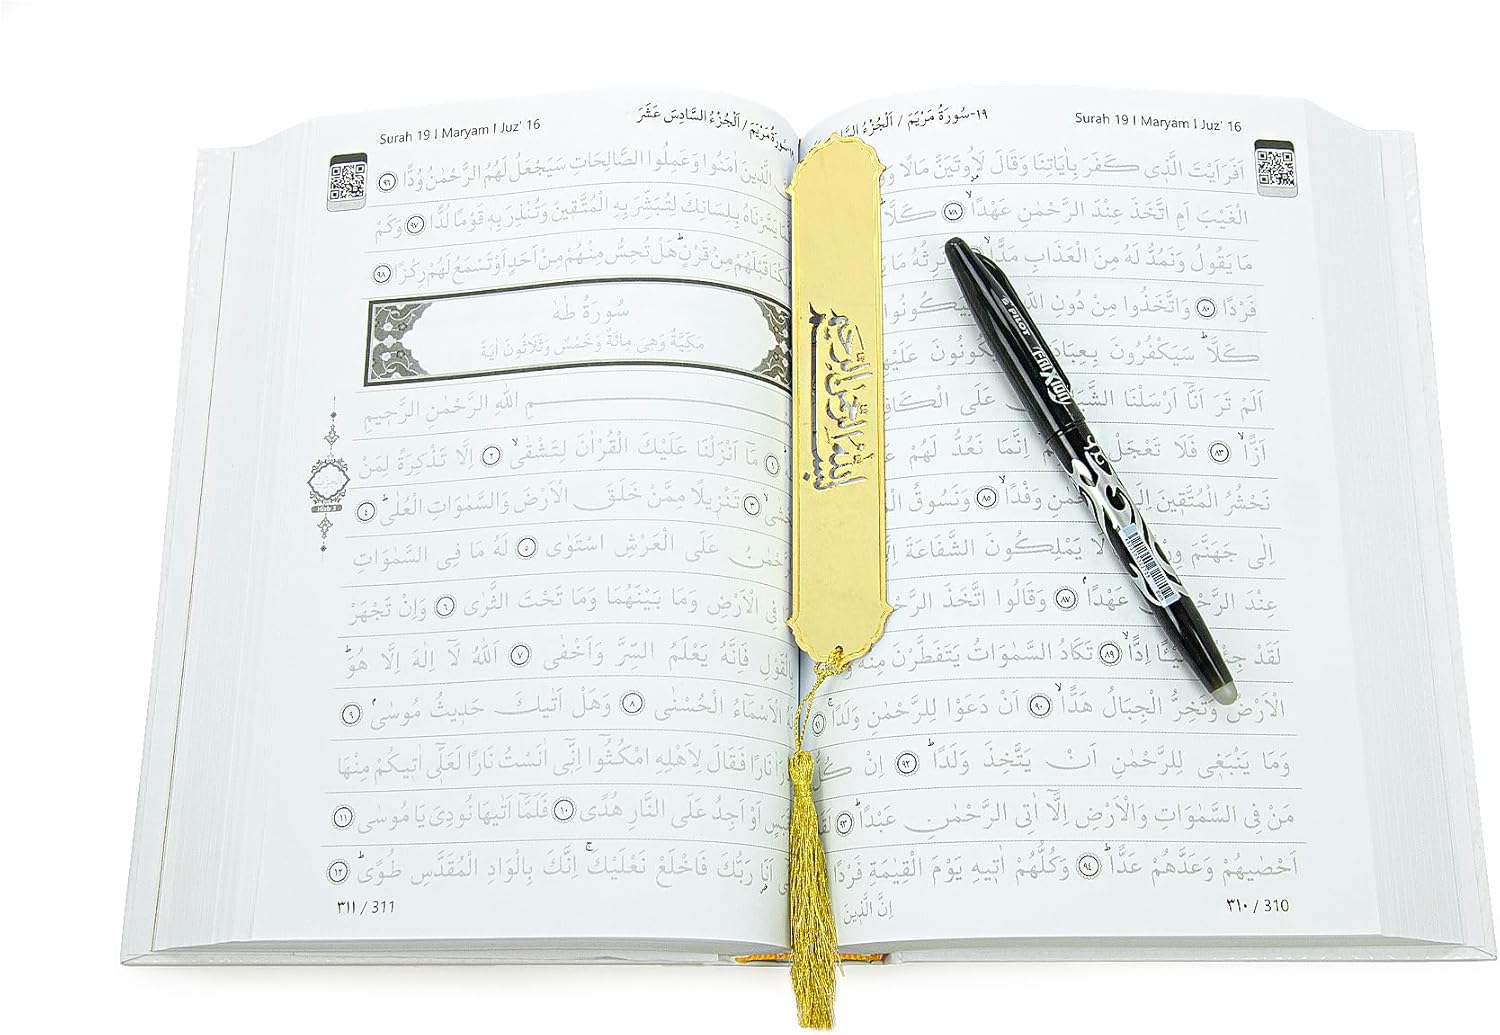 ١٩-سُورَةُ مَرْيَمَ / اَلْجُزْءُ السَّا
Surah 19 I Maryam I Juz' 16
اَفَرَاَيْتَ الَّذِي كَفَرَ بِاٰيَاتِنَا وَقَالَ لَاُوتَيَنَّ مَالًا
الْغَيْبَ اَمِ اتَّخَذَ عِنْدَ الرَّحْمٰنِ عَهْدًاۙ ٧٨ كَلَّا
مَا يَقُولُ وَنَمُدُّ لَهُ مِنَ الْعَذَابِ مَدًّاۙ رِثُهُ مَا
فَرْدًا ٨٠ وَاتَّخَذُوا مِنْ دُونِ اللّٰهِ يَكُونُوا
كَلَّاۜ سَيَكْفُرُونَ بِعِبَادَ يَكُونُونَ عَلَيْهِ
اَلَمْ تَرَ اَنَّا اَرْسَلْنَا الشَّيَ عَلَى الْكَافِ
اَزًّاۙ ٨٣ فَلَا تَعْجَلْ اِنَّمَا نَعُدُّ لَهُمْ
نَحْشُرُ الْمُتَّقِينَ اِلَى حْمٰنِ وَفْدًاۙ ٨٥ وَنَسُوقُ
اِلٰى جَهَنَّمَ وِرْ لَا يَمْلِكُونَ الشَّفَاعَةَ
عِنْدَ الرَّحْمٰ عَهْدًاۢ ٨٧ وَقَالُوا اتَّخَذَ الرَّحْ
لَقَدْ جِئْ يْئًا اِدًّاۙ ٨٩ تَكَادُ السَّمٰوَاتُ يَتَفَطَّرْنَ مِنْهُ
الْاَرْضُ وَتَخِرُّ الْجِبَالُ هَدًّاۙ ٩٠ اَنْ دَعَوْا لِلرَّحْمٰنِ وَلَدًاۚ ٩١
وَمَا يَنْبَغِي لِلرَّحْمٰنِ اَنْ يَتَّخِذَ وَلَدًاۜ ٩٢ اِنْ كُلُّ
مَنْ فِي السَّمٰوَاتِ وَالْاَرْضِ اِلَّٓا اٰتِي الرَّحْمٰنِ عَبْدًاۜ ٩٣ لَقَدْ
اَحْصٰيهُمْ وَعَدَّهُمْ عَدًّاۜ ٩٤ وَكُلُّهُمْ اٰتِيهِ يَوْمَ الْقِيٰمَةِ فَرْدًا
اِنَّ الَّذِينَ
٣١٠ / 310
Surah 19 I Maryam I Juz' 16
١٩-سُورَةُ مَرْيَمَ / اَلْجُزْءُ السَّادِسَ عَشَرَ
الَّذِينَ اٰمَنُوا وَعَمِلُوا الصَّالِحَاتِ سَيَجْعَلُ لَهُمُ الرَّحْمٰنُ وُدًّا ٩٦
يَسَّرْنَاهُ بِلِسَانِكَ لِتُبَشِّرَ بِهِ الْمُتَّقِينَ وَتُنْذِرَ بِهِ قَوْمًا لُدًّا ٩٧ وَكَمْ
لَكْنَا قَبْلَهُمْ مِنْ قَرْنٍۜ هَلْ تُحِسُّ مِنْهُمْ مِنْ اَحَدٍ اَوْ تَسْمَعُ لَهُمْ رِكْزًا ٩٨
سُورَةُ طٰهٰ
مَكِّيَّةٌ وَهِيَ مِائَةٌ وَخَمْسٌ وَثَلَاثُونَ اٰيَةً
مِ اللّٰهِ الرَّحْمٰنِ الرَّحِيمِ
١ مَٓا اَنْزَلْنَا عَلَيْكَ الْقُرْاٰنَ لِتَشْقٰىۙ ٢ اِلَّا تَذْكِرَةً لِمَنْ
شٰىۙ ٣ تَنْزِيلًا مِمَّنْ خَلَقَ الْاَرْضَ وَالسَّمٰوَاتِ الْعُلٰىۜ ٤
حْمٰنُ عَلَى الْعَرْشِ اسْتَوٰى ٥ لَهُ مَا فِي السَّمٰوَاتِ
ا فِي الْاَرْضِ وَمَا بَيْنَهُمَا وَمَا تَحْتَ الثَّرٰى ٦ وَاِنْ تَجْهَرْ
بِالْقَوْلِ فَاِنَّهُ يَعْلَمُ السِّرَّ وَاَخْفٰى ٧ اَللّٰهُ لَٓا اِلٰهَ اِلَّا هُوَۜ
هُ الْاَسْمَٓاءُ الْحُسْنٰى ٨ وَهَلْ اَتٰيكَ حَدِيثُ مُوسٰىۢ ٩
رَاٰ نَارًا فَقَالَ لِاَهْلِهِ امْكُثُٓوا اِنِّٓي اٰنَسْتُ نَارًا لَعَلِّٓي اٰتِيكُمْ مِنْهَا
بَسٍ اَوْ اَجِدُ عَلَى النَّارِ هُدًى ١٠ فَلَمَّٓا اَتٰيهَا نُودِيَ يَا مُوسٰىۜ ١١
اَنَا رَبُّكَ فَاخْلَعْ نَعْلَيْكَۚ اِنَّكَ بِالْوَادِ الْمُقَدَّسِ طُوًىۜ ١٢
٣١١ / 311
بسم الله الرحمن الرحيم
PILOT
FRIXION